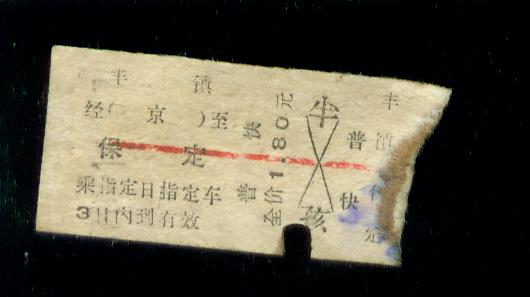 丰 镇
经( 京 )至
保 定
乘指定日指定车
3日内到有效
普 快
全价1.80元
半
孩
丰
普 镇
快
定